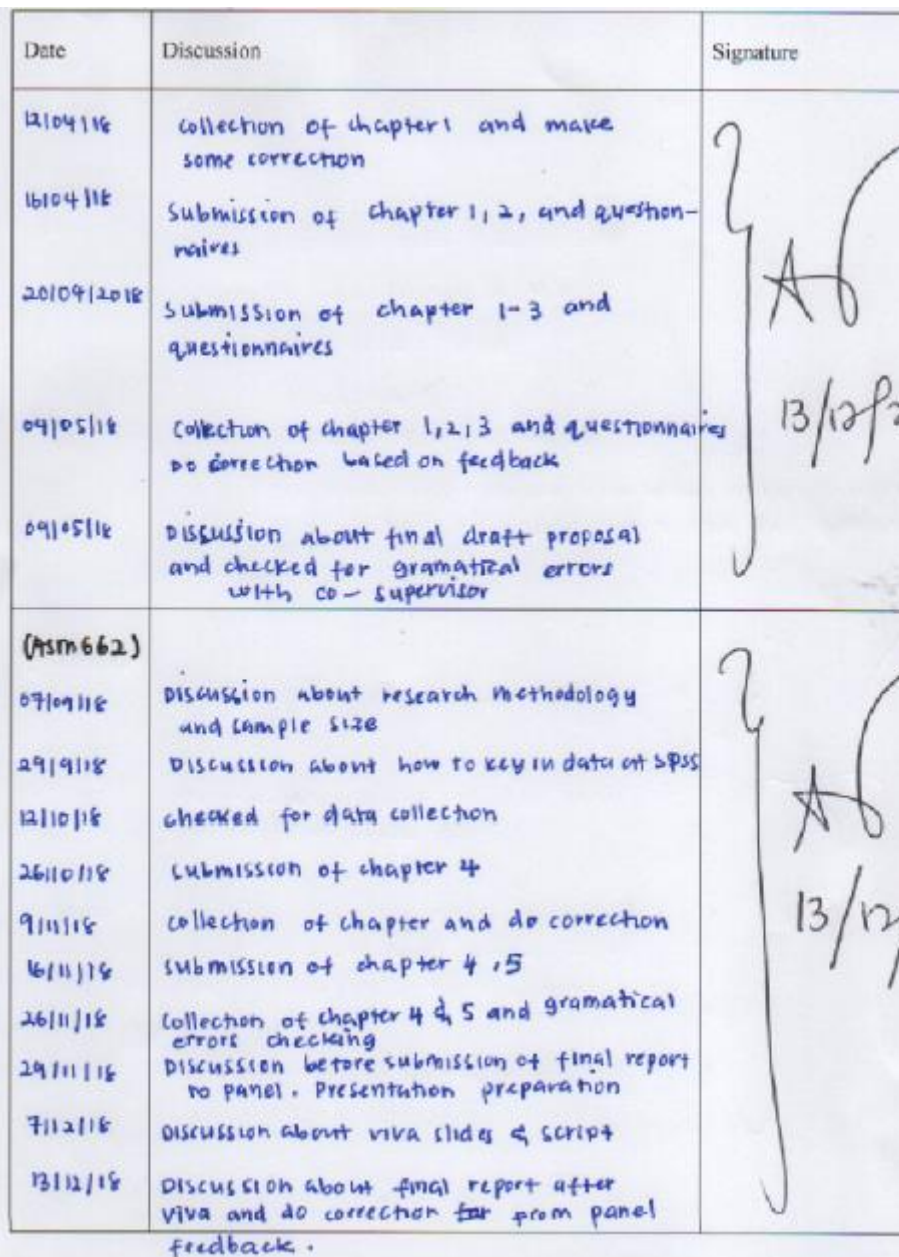 Date Discussion Signature
12/04/18 collection of chapter 1 and make
some correction
16/04/18 submission of chapter 1, 2, and question-
naires
20/04/2018 submission of chapter 1-3 and
questionnaires
04/05/18 collection of chapter 1, 2, 3 and questionnaires
Do correction based on feedback
09/05/18 Discussion about final draft proposal
and checked for gramatical errors
with co - supervisor
13/12/2
(Asm662)
07/09/18 Discussion about research methodology
and sample size
29/9/18 Discussion about how to key in data at SPSS
12/10/18 checked for data collection
26/10/18 submission of chapter 4
9/11/18 collection of chapter and do correction
16/11/18 submission of chapter 4, 5
26/11/18 collection of chapter 4 & 5 and gramatical
errors checking
29/11/18 Discussion before submission of final report
to panel. Presentation preparation
7/12/18 Discussion about viva slides & script
13/12/18 Discussion about final report after
viva and do correction from panel
feedback.
13/12/